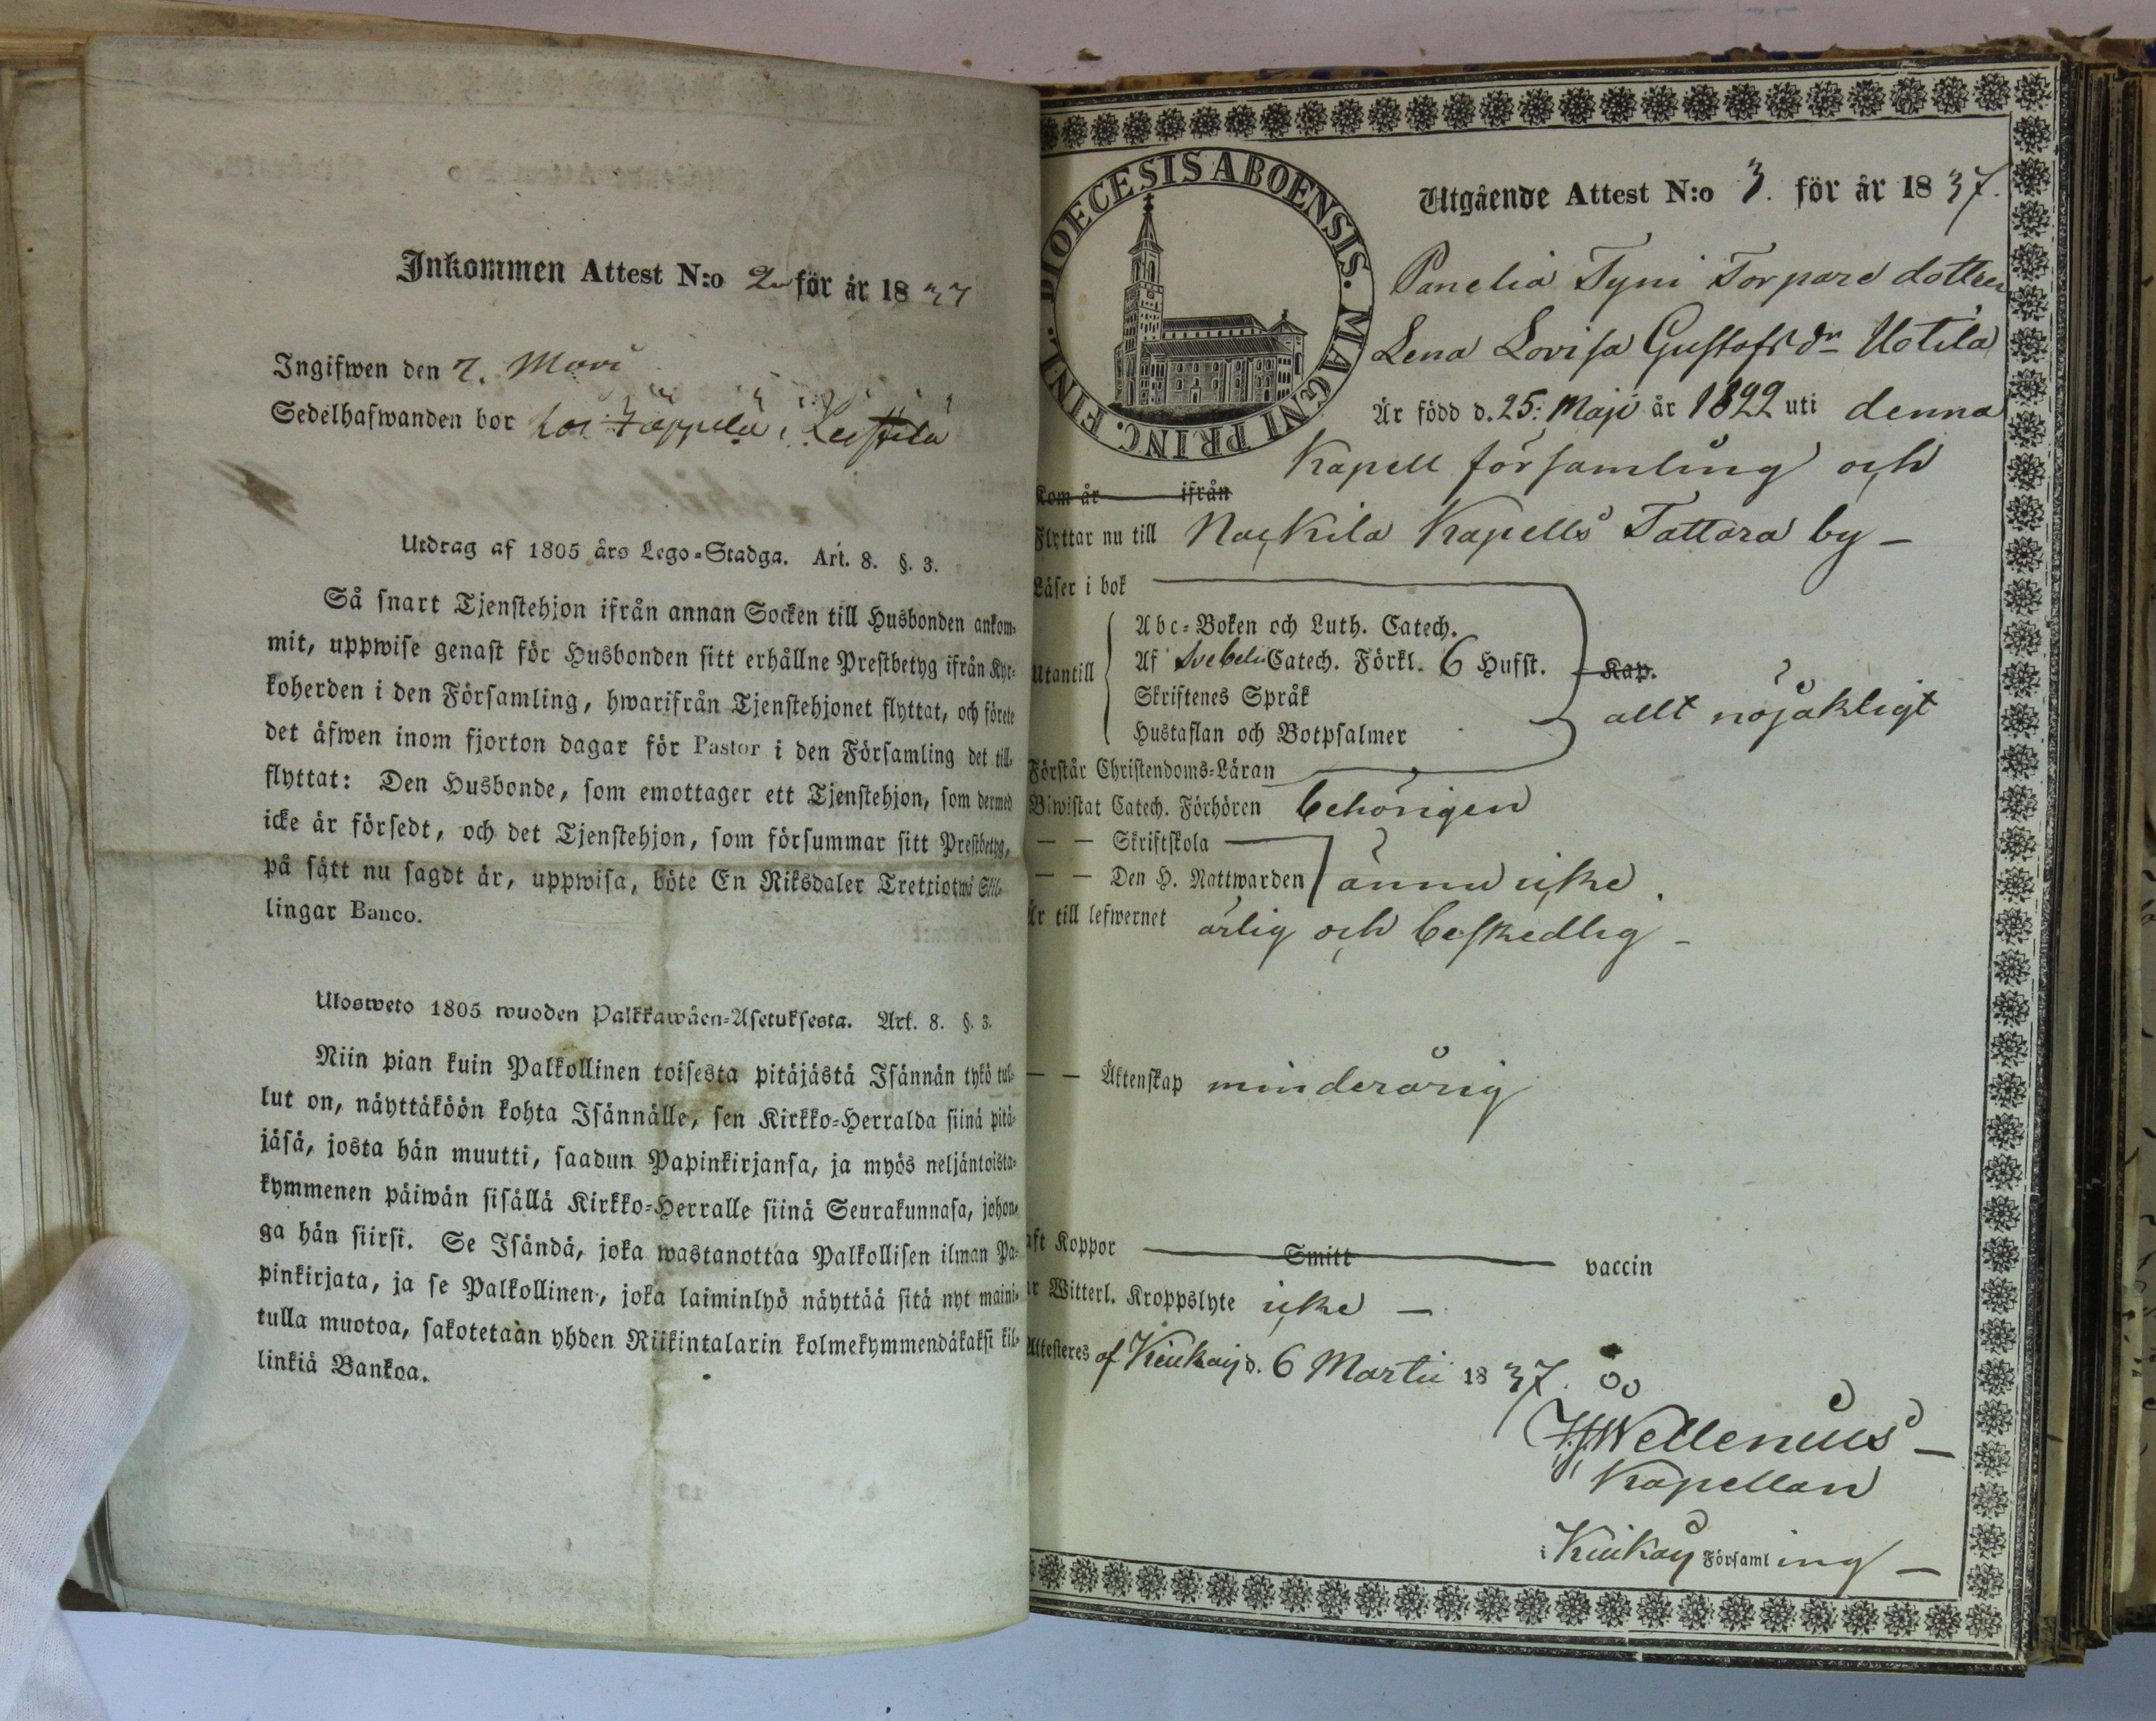 Inkommen Attest N:o 2 för år 1837
Ingifwen den 7. Mars
Sedelhafwanden bor hos i Leistilä
Utdrag af 1805 års Lego-Stadga. Art. 8. §. 3.
Så snart Tjenstehjon ifrån annan Socken till Husbonden ankom-
mit, uppwise genast för Husbonden sitt erhållne Prestbetyg ifrån Kyr-
koherden i den Församling, hwarifrån Tjenstehjonet flyttat, och förete
det äfwen inom fjorton dagar för Pastor i den Församling det till-
flyttat: Den Husbonde, som emottager ett Tjenstehjon, som dermed
icke är försedt, och det Tjenstehjon, som försummar sitt Prestbetyg,
på sätt nu sagdt är, uppwisa, böte En Riksdaler Trettiotwå Skil-
lingar Banco.
Ulosweto 1805 wuoden Palkkawäen-Asetuksesta. Art. 8. §. 3.
Niin pian kuin Palkollinen toisesta pitäjästä Isännän tykö tul-
lut on, näyttäköön kohta Isännälle, sen Kirkko-Herralda siinä pitä-
jäsä, josta hän muutti, saadun Papinkirjansa, ja myös neljäntoista-
kymmenen päiwän sisällä Kirkko-Herralle siinä Seurakunnasa, johon-
ga hän siirsi. Se Isändä, joka wastanottaa Palkollisen ilman Pa-
pinkirjata, ja se Palkollinen, joka laiminlyö näyttää sitä nyt maini-
tulla muotoa, sakotetaan yhden Riikintalarin kolmekymmendäkaksi kil-
linkiä Bankoa.
DIOECESIS ABOENSIS. MAGNI PRINC. FINL.
Utgående Attest N:o 3. för år 1837.
Panelia Tyni Torpare dottren
Lena Lovisa Gustafsdr Uotila
Är född d. 25: Maji år 1822 uti denna
Kapell församling och
Kom år ifrån
Flyttar nu till Nackila Kapells Tattara by –
Läser i bok
Utantill
Abc-Boken och Luth. Catech.
Af Svebelii Catech. Förkl. 6 Hufst. Kap.
Skriftenes Språk
Hustaflan och Botpsalmer
allt nöjaktligt
Förstår Christendoms-Läran
Biwistat Catech. Förhören behörigen
— — Skriftskola
— — Den H. Nattwarden ännu icke.
Är till lefwernet ärlig och beskedlig –
— — Äktenskap minderårig
aft Koppor Smitt vaccin
ar Witterl. Kroppslyte icke –
Attesteres af Kiukais d. 6 Martii 1837.
Wellenius –
Kapellan
i Kiukais Församling –